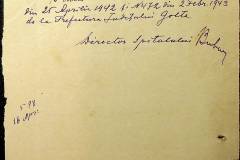 din 25 Aprilie 1942 și No 472 din 2 febr. 1943
de la Prefectura Județului Golta
Director Spitalului
598